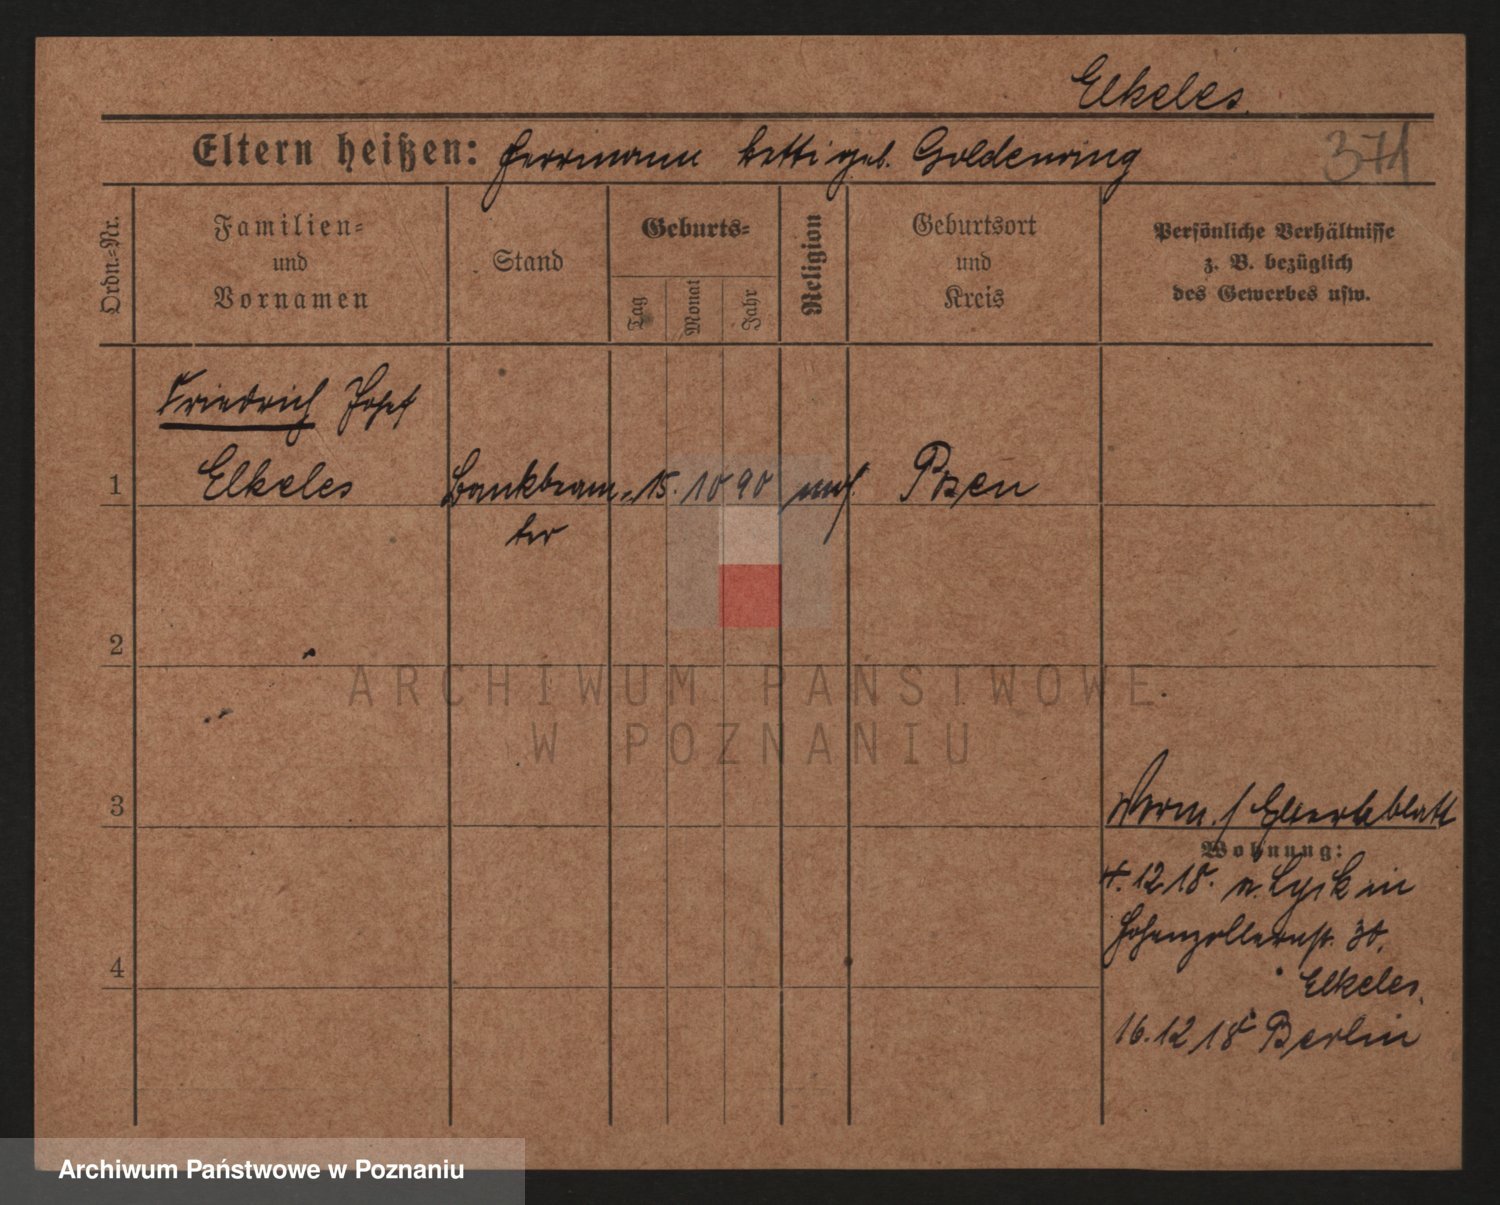 Elkeles.
Eltern heißen: Herrmann Ketti geb. Goldenring
371
Ordn.-Nr.
Familien-
und
Vornamen
Stand
Geburts-
Tag
Monat
Jahr
Religion
Geburtsort
und
Kreis
Persönliche Verhältnisse
z. B. bezüglich
des Gewerbes usw.
Friedrich Josef
1 Elkeles Bankbeam- 15. 10 90 mos. Posen
ter
2
ARCHIWUM PAŃSTWOWE
W POZNANIU
3
Verm. / Elternblatt
Wohnung:
4. 12 18. v. Lyck in
Hohenzollernstr. 30.
4
Elkeles.
16. 12 18 Berlin
Archiwum Państwowe w Poznaniu